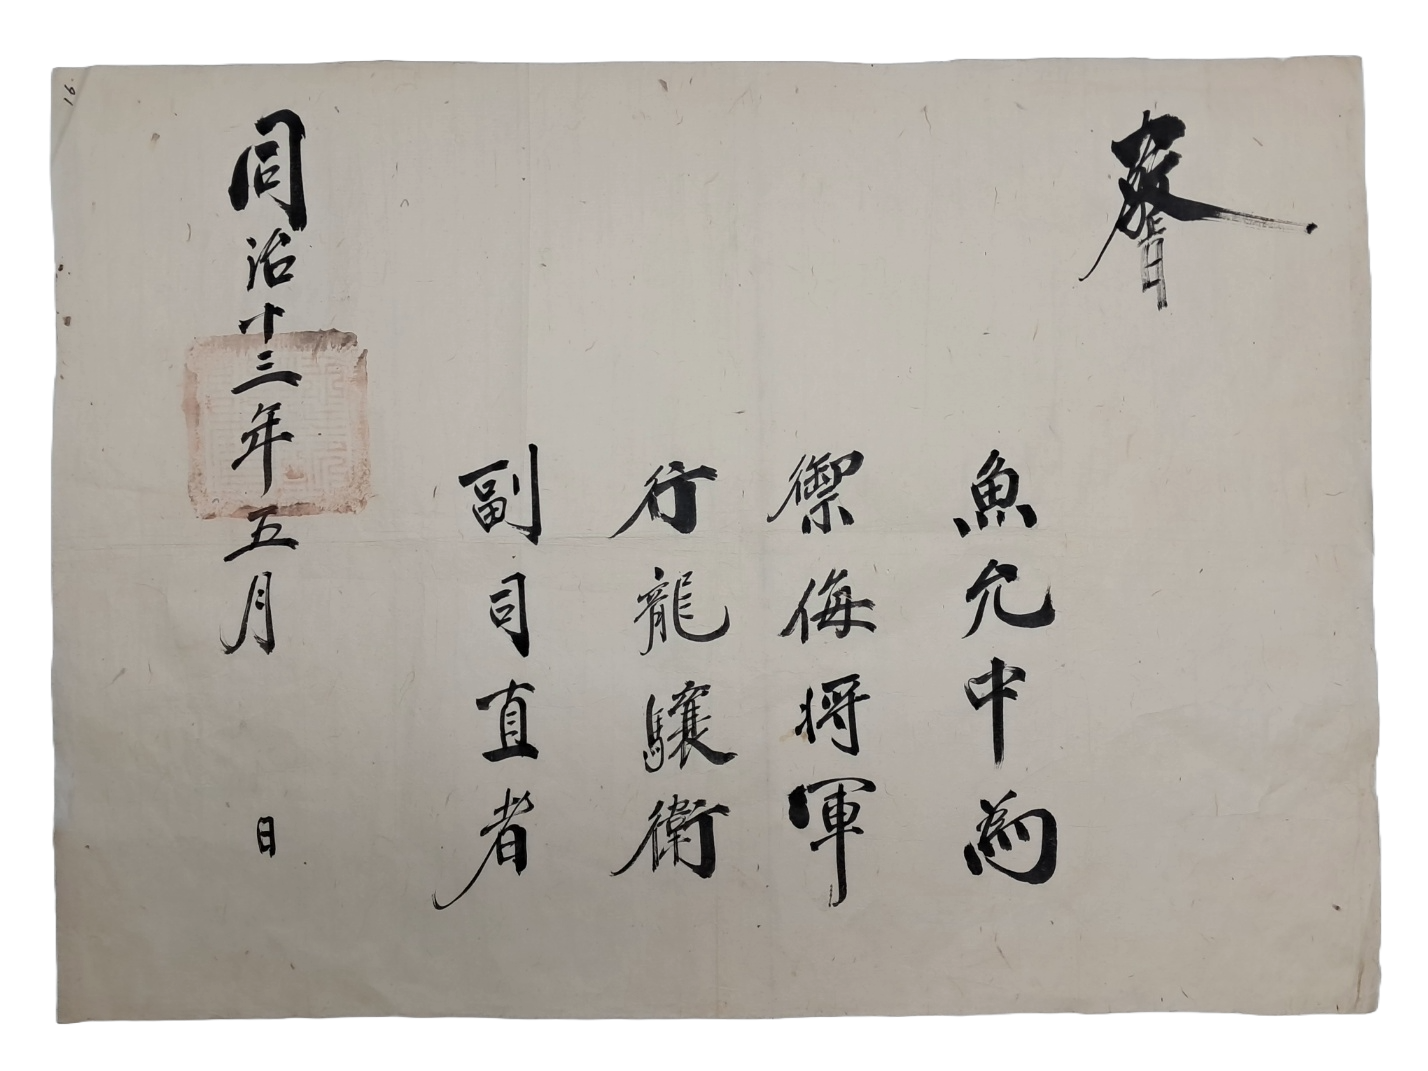 敎旨
魚允中為
禦侮將軍
行龍驤衛
副司直者
同治十三年五月 日
16.